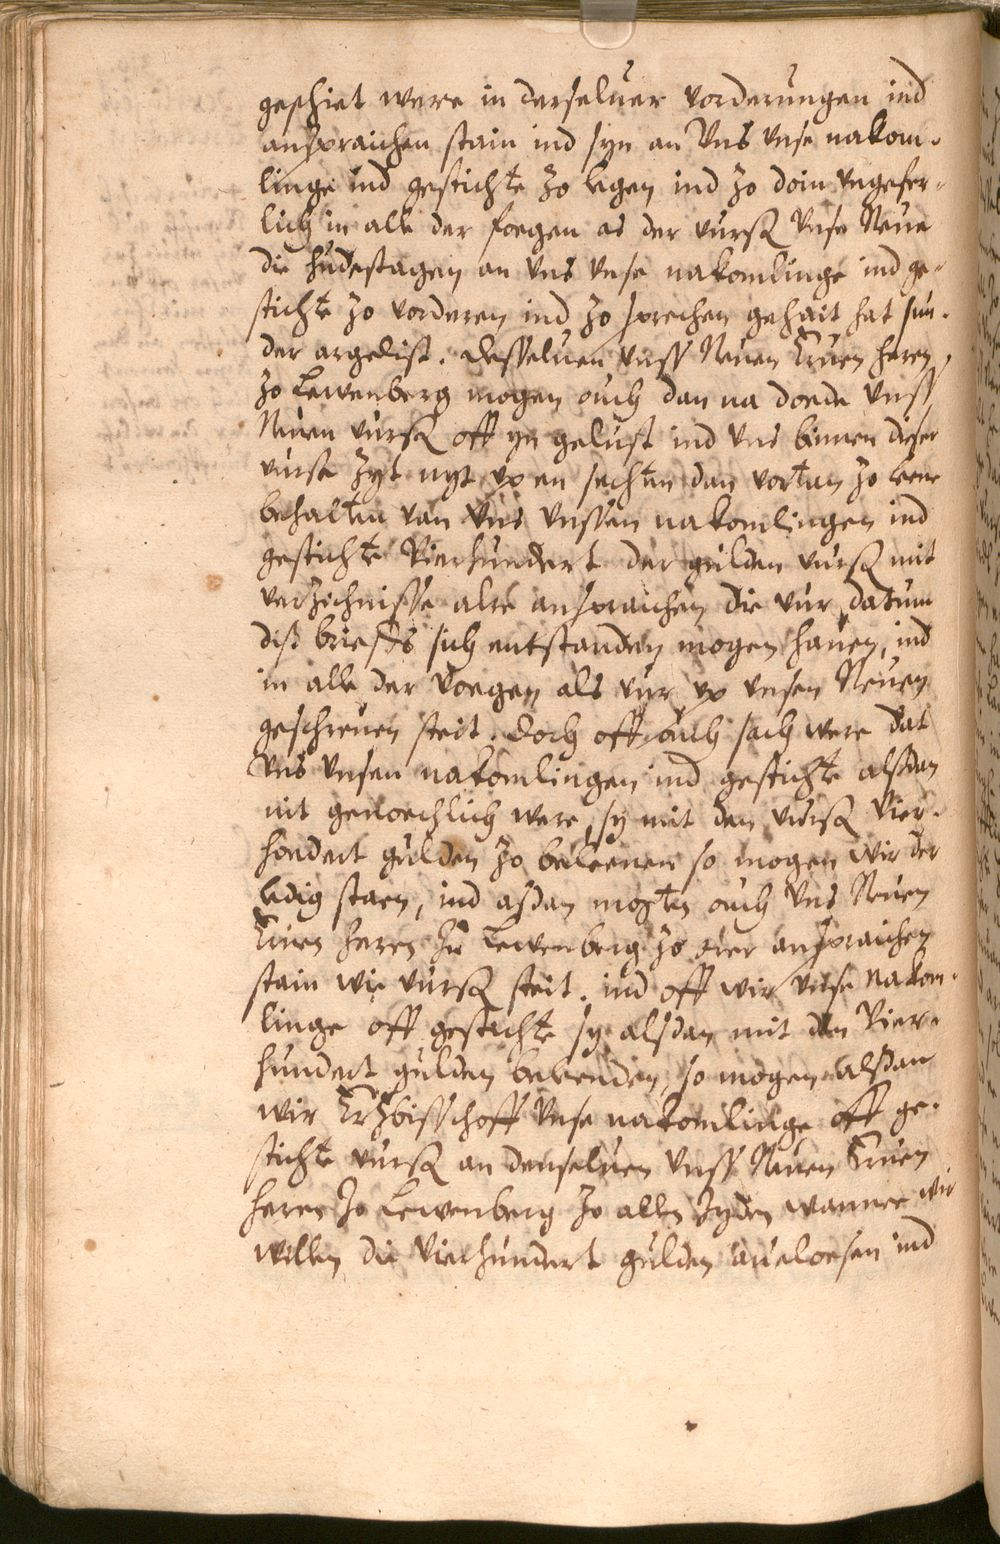 geschiet were in derseluer vorderungen ind
anspraichen stain ind syn an Vns vnse nakom-
linge ind gestichte zo legen ind zo doin vngefer-
lich in alle der foegen as der vurß Vnse Neue
die hudestagen an vns vnse nakomlinge ind ge-
stichte zo vorderen ind zo sprechen gehait hat sun-
der argelist. Desseluen vnss Neuen Eruen heren
zo Lewenberg mogen ouch dan na doede vnss
Neuen vurß off yn gelust ind vns binnen dieser
vurß zyt nyt up en sechten dan vortan zo leene
behalten van vns vnssen nakomlingen ind
gestichte Vierhundert der gulden vurß mit
verzichnisse alre anspraichen die vur datum
diß brieffs sich entstanden mogen hauen, ind
in alle der voegen als vur up vnsen Neuen
geschreuen steit. Doch off ouch sach were dat
Vns vnsen nakomlingen ind gestichte alßdan
nit genoechlich were, sy mit den vurß Vier-
hondert gulden zo beleenen so mogen wir der
ledig staen, ind aßdan mogten ouch vns Neuen
Eruen heren zu Lewenberg zo irer anspraichen
stain wie vurß steit. ind off wir vnse nakom-
linge off gestichte sy alsdan mit den Vier-
hundert gulden beleenden, so mogen alßdan
wir Ertzbisschoff vnse nakomlinge off ge-
stichte vurß an denseluen vnss Neuen Eruen
heren zo Lewenberg zo allen zyden wannee wir
willen die vierhundert gulden aueloesen ind